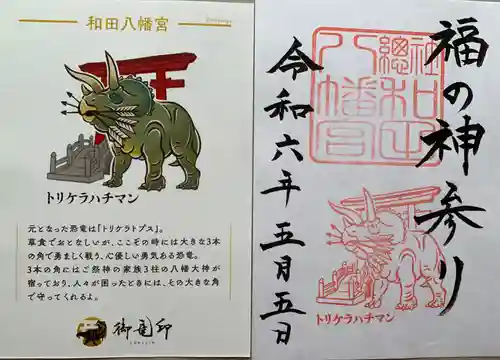 和田八幡宮
トリケラハチマン
元となった恐竜は「トリケラトプス」。
草食でおとなしいが、ここぞの時には大きな3本
の角で勇ましく戦う、心優しい勇気ある恐竜。
3本の角にはご祭神の家族3柱の八幡大神が
宿っており、人々が困ったときには、その大きな角
で守ってくれるよ。
御竜印
福の神参り
総社和田八幡宮
トリケラハチマン
令和六年五月五日